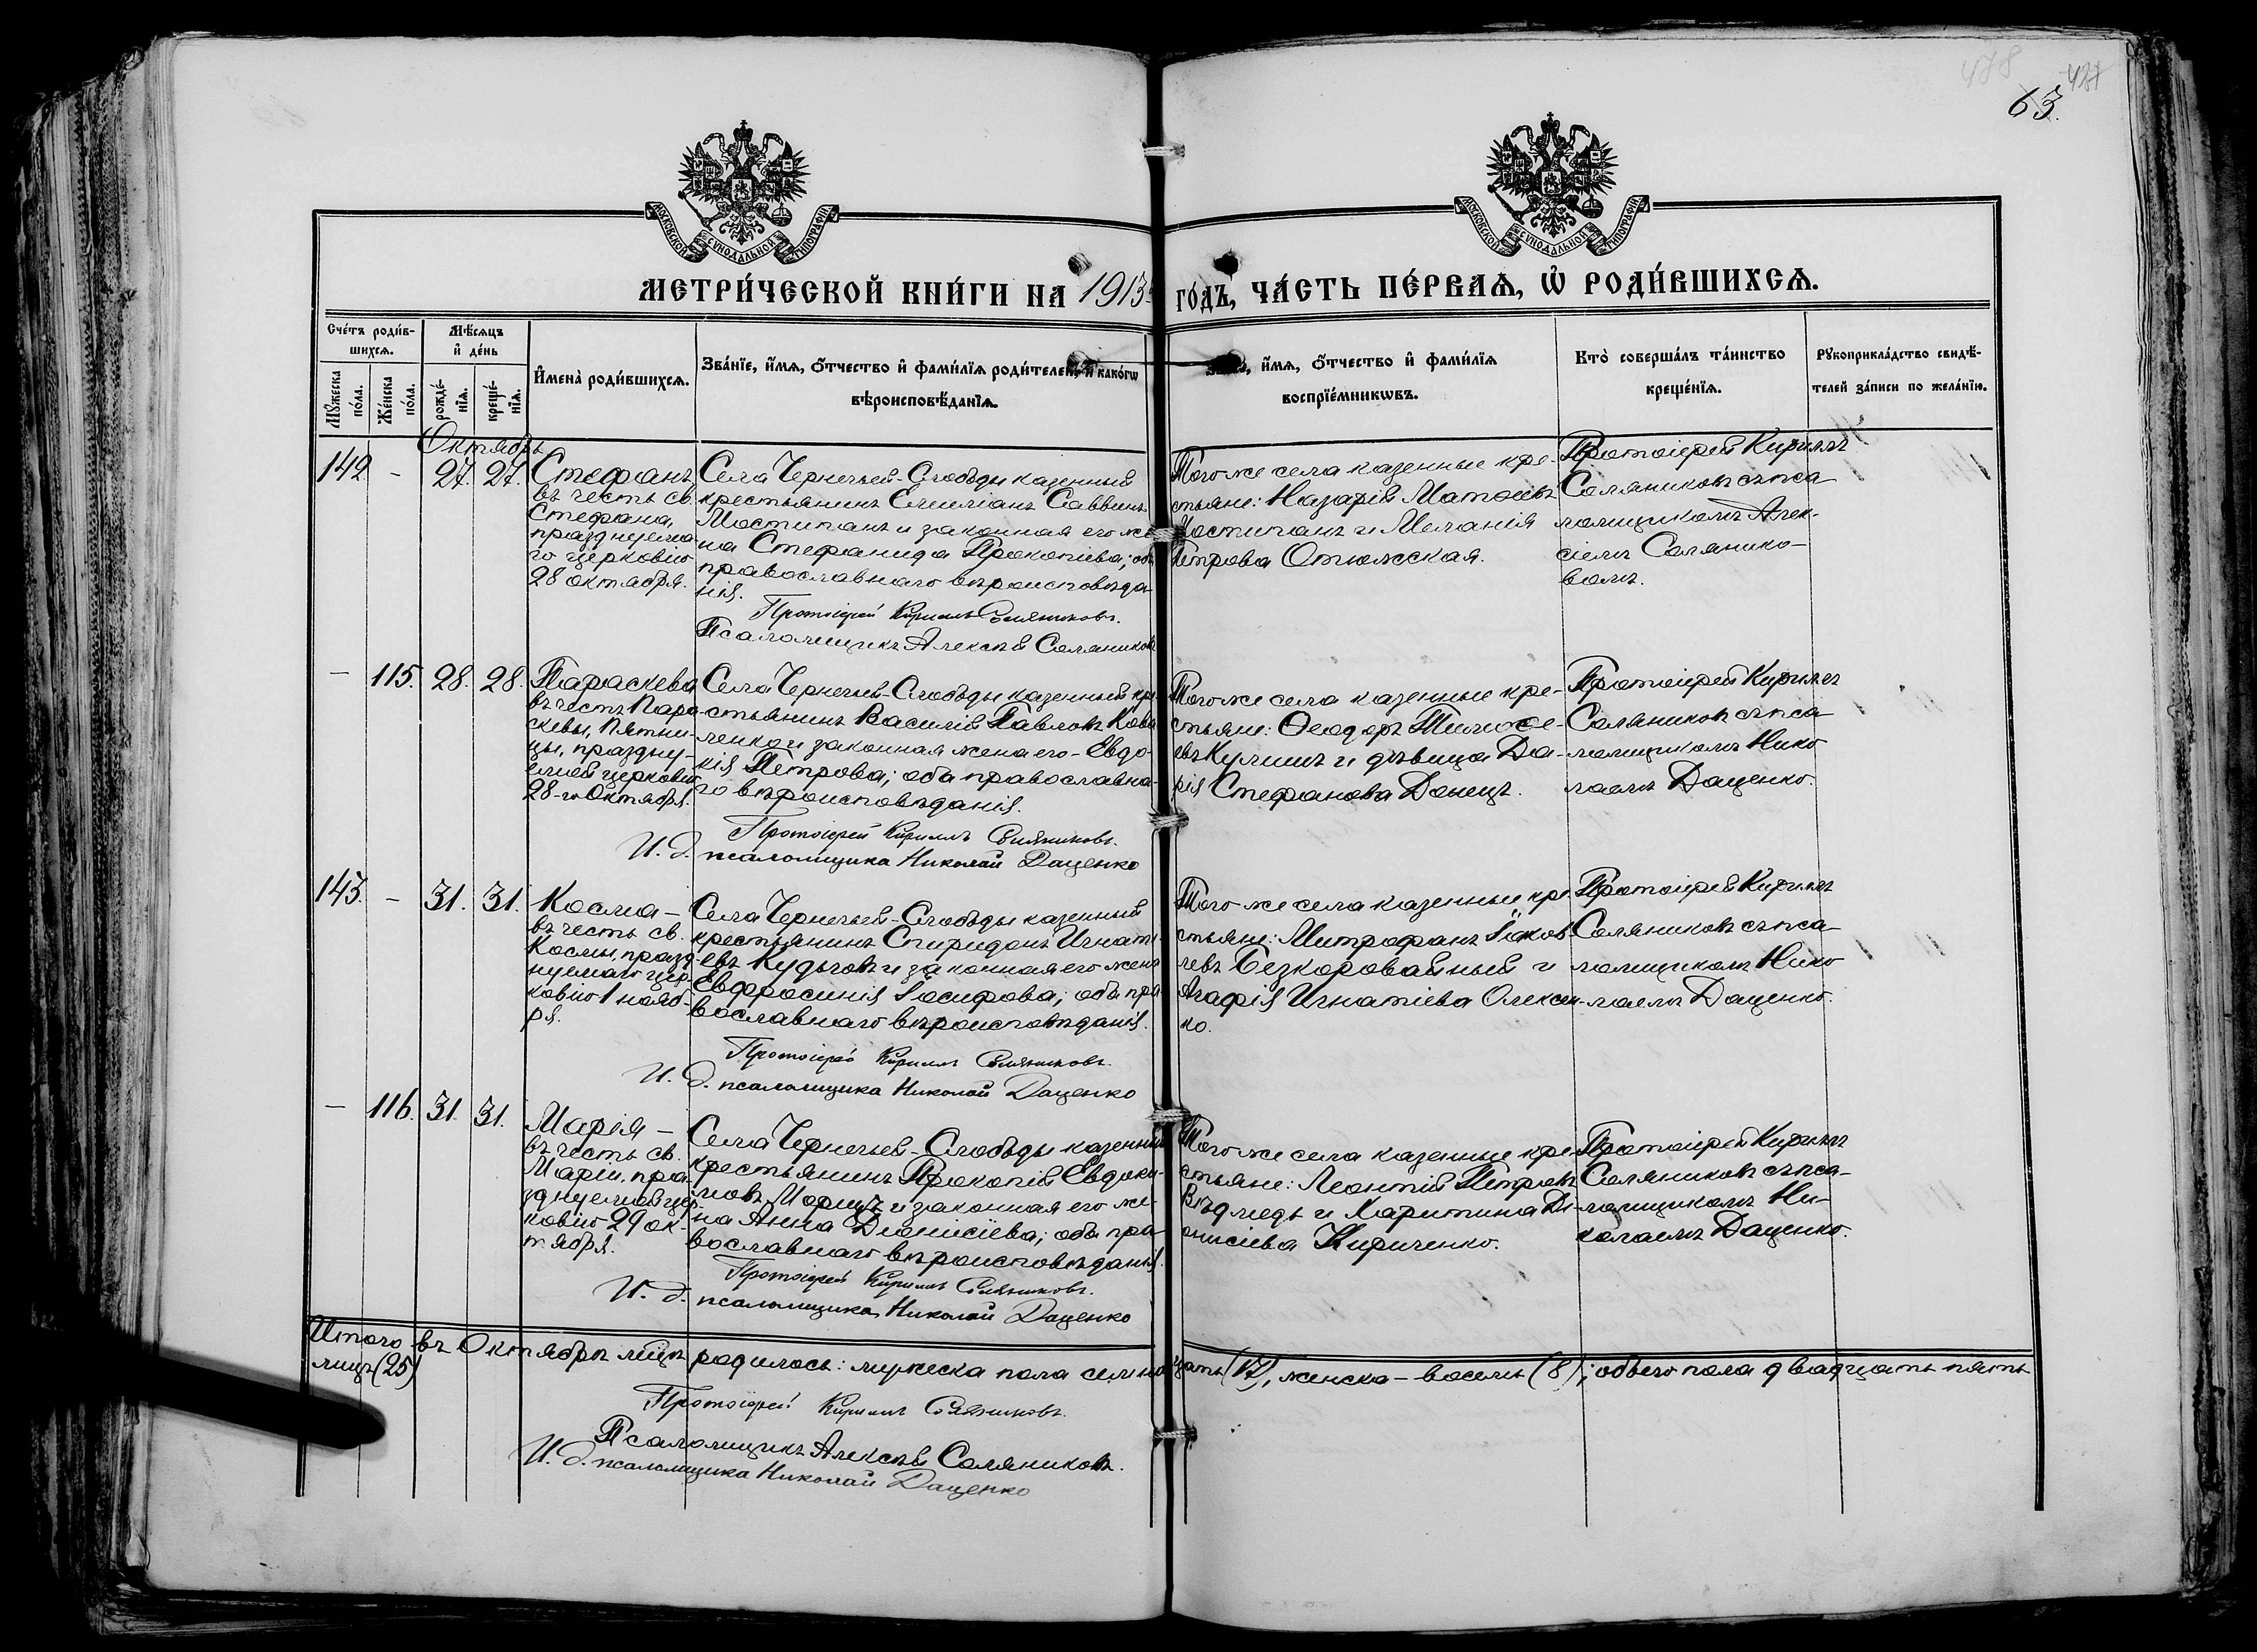 478
477
63.
МОСКОВСКОЙ СѴНОДАЛЬНОЙ ТИПОГРАФІИ
МОСКОВСКОЙ СѴНОДАЛЬНОЙ ТИПОГРАФІИ
МЕТРИ́ЧЕСКОЙ КНИ́ГИ НА 1913 ГО́ДЪ, ЧА́СТЬ ПЕ́РВАѦ, Ѡ РОДИ́ВШИХСѦ.
Сче́тъ роди́в-
шихсѧ.
Мꙋ́жеска по́ла.
Же́нска по́ла.
Мѣ́сѧцъ
и҆ де́нь
рожде́-
нїѧ.
креще́-
нїѧ.
И҆мена̀ роди́вшихсѧ.
Зва́нїе, и҆́мѧ, ѻ҆́тчество и҆ фами́лїѧ роди́телей, и҆ како́гѡ
вѣроисповѣ́данїѧ.
и҆́мѧ, ѻ҆́тчество и҆ фами́лїѧ
воспрїе́мникѡвъ.
Кто̀ соверша́лъ та́инство
креще́нїѧ.
Рꙋкоприкла́дство свидѣ́-
телей за́писи по жела́нїю.
Октябрь
142 - 27. 27.
Стефанъ
въ честь св.
Стефана,
празднуема-
го церковію
28 октября.
Села Чернечьей-Слободы казенный
крестьянинъ Емиліанъ Саввинъ
Мостипанъ и законная его же-
на Стефанида Прокопіева; оба
православнаго вѣроисповѣда-
нія.
Протоіерей Кириллъ Соляниковъ.
Псаломщикъ Алексѣй Соляниковъ
Того же села казенные кре-
стьяне: Назарій Матѳеевъ
Мостипанъ и Меланія
Петрова Отюжская.
Протоіерей Кириллъ
Соляниковъ съ пса-
ломщикомъ Алек-
сіемъ Солянико-
вымъ.
- 115. 28. 28.
Параскева
въ честь Пара-
скевы, Пятни-
цы, праздну-
емой церковію
28-го Октября.
Села Чернечьей-Слободы казенный кре-
стьянинъ Василій Павловъ Кова-
ленко и законная жена его - Евдо-
кія Петрова; оба православна-
го вѣроисповѣданія.
Протоіерей Кириллъ Соляниковъ.
И. д. псаломщика Николай Даценко
Того же села казенные кре-
стьяне: Ѳеодоръ Тимоѳе-
евъ Кулишъ и дѣвица Да-
рія Стефанова Донецъ.
Протоіерей Кириллъ
Соляниковъ съ пса-
ломщикомъ Нико-
лаемъ Даценко.
143. - 31. 31.
Косма -
въ честь св.
Космы, празд-
нуемаго цер-
ковію 1 нояб-
ря.
Села Чернечьей-Слободы казенный
крестьянинъ Спиридонъ Игнаті-
евъ Кудьговъ и законная его жена
Евфросинія Іосифова; оба пра-
вославнаго вѣроисповѣданія.
Протоіерей Кириллъ Соляниковъ.
И. д. псаломщика Николай Даценко
Того же села казенные кре-
стьяне: Митрофанъ Іаков-
левъ Безкоровайный и
Агафія Игнатіева Олексен-
ко.
Протоіерей Кириллъ
Соляниковъ съ пса-
ломщикомъ Нико-
лаемъ Даценко.
- 116. 31. 31.
Марія -
въ честь св.
Маріи, пра-
зднуемой цер-
ковію 29 ок-
тября.
Села Чернечьей-Слободы казенный
крестьянинъ Прокопій Евдоки-
мовъ Морицъ и законная его же-
на Анна Діонисіева; оба пра-
вославнаго вѣроисповѣданія.
Протоіерей Кириллъ Соляниковъ.
И. д. псаломщика Николай Даценко
Того же села казенные кре-
стьяне: Леонтій Петровъ
Вѣдмедь и Харитина Ді-
онисіева Кириченко.
Протоіерей Кириллъ
Соляниковъ съ пса-
ломщикомъ Ни-
колаемъ Даценко.
Итого въ Октябрѣ мѣсяцѣ родилось: мужеска пола семнадцать (17), женска - восемь (8); обоего пола двадцать пять
лицъ (25)
Протоіерей Кириллъ Соляниковъ.
Псаломщикъ Алексѣй Соляниковъ.
И. д. псаломщика Николай Даценко